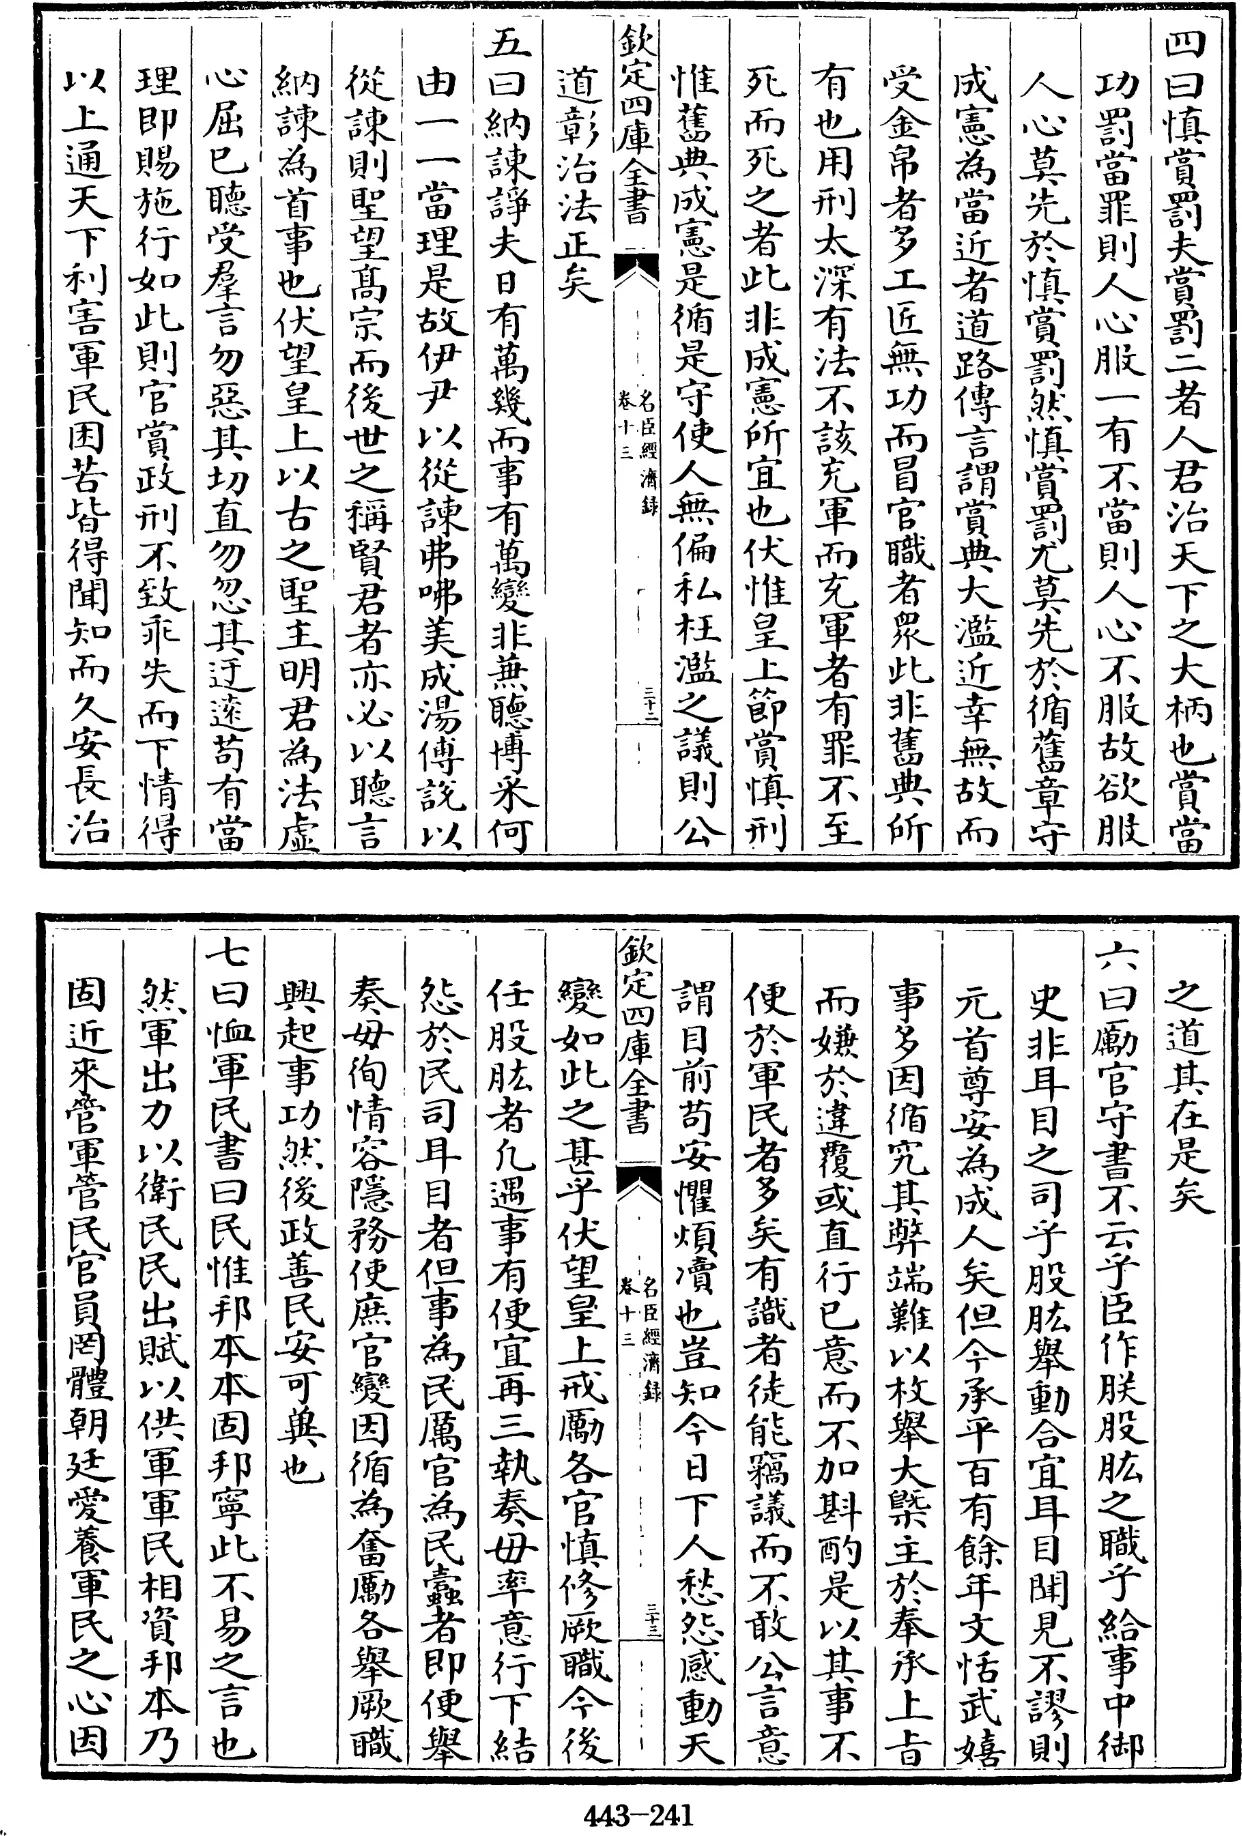 四曰慎賞罰夫賞罰二者人君治天下之大柄也賞當
功罰當罪則人心服一有不當則人心不服故欲服
人心莫先於慎賞罰然慎賞罰尤莫先於循舊章守
成憲為當近者道路傳言謂賞典大濫近幸無故而
受金帛者多工匠無功而冒官職者衆此非舊典所
有也用刑太深有法不該充軍而充軍者有罪不至
死而死之者此非成憲所宜也伏惟皇上節賞慎刑
惟舊典成憲是循是守使人無偏私枉濫之議則公
欽定四庫全書
名臣經濟録
卷十三
三十二
道彰治法正矣
五曰納諫諍夫日有萬幾而事有萬變非蕪聽博采何
由一一當理是故伊尹以從諫弗咈美成湯傅說以
從諫則聖望髙宗而後世之稱賢君者亦必以聽言
納諫為首事也伏望皇上以古之聖主明君為法虚
心屈已聽受羣言勿惡其切直勿忽其迂遠苟有當
理即賜施行如此則官賞政刑不致乖失而下情得
以上通天下利害軍民困苦皆得聞知而久安長治
之道其在是矣
六曰勵官守書不云乎臣作朕股肱之職乎給事中御
史非耳目之司乎股肱舉動合宜耳目聞見不謬則
元首尊安為成人矣但今承平百有餘年文恬武嬉
事多因循究其弊端難以枚舉大槩主於奉承上㫖
而嫌於違覆或直行已意而不加斟酌是以其事不
便於軍民者多矣有識者徒能竊議而不敢公言意
謂目前苟安懼煩凟也豈知今日下人愁怨感動天
欽定四庫全書
名臣經濟録
卷十三
三十三
變如此之甚乎伏望皇上戒勵各官慎修厥職今後
任股肱者凢遇事有便宜再三執奏毋率意行下結
怨於民司耳目者但事為民厲官為民蠹者即便舉
奏毋徇情容隱務使庶官變因循為奮勵各舉厥職
興起事功然後政善民安可兾也
七曰恤軍民書曰民惟邦本本固邦寧此不易之言也
然軍出力以衛民民出賦以供軍軍民相資邦本乃
固近來管軍管民官員罔體朝廷愛養軍民之心因
443-241